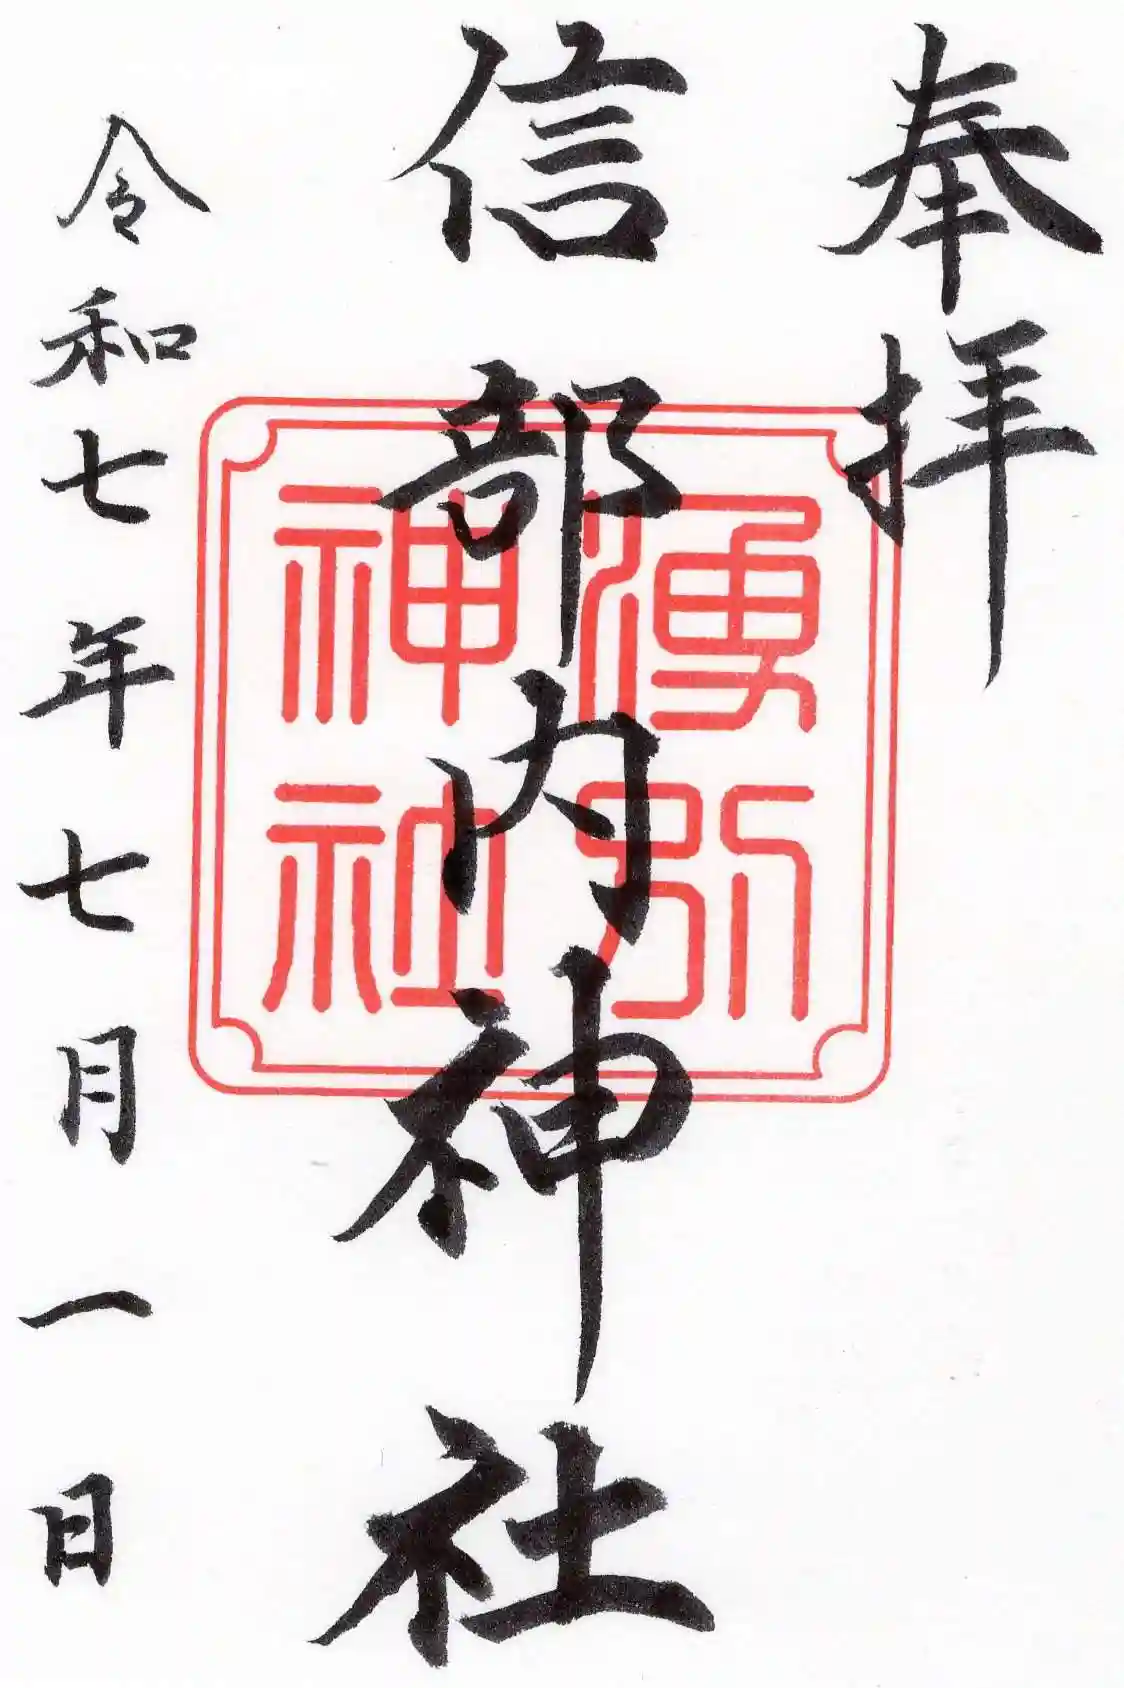 奉拝
信部内神社
湧別神社
令和七年七月一日